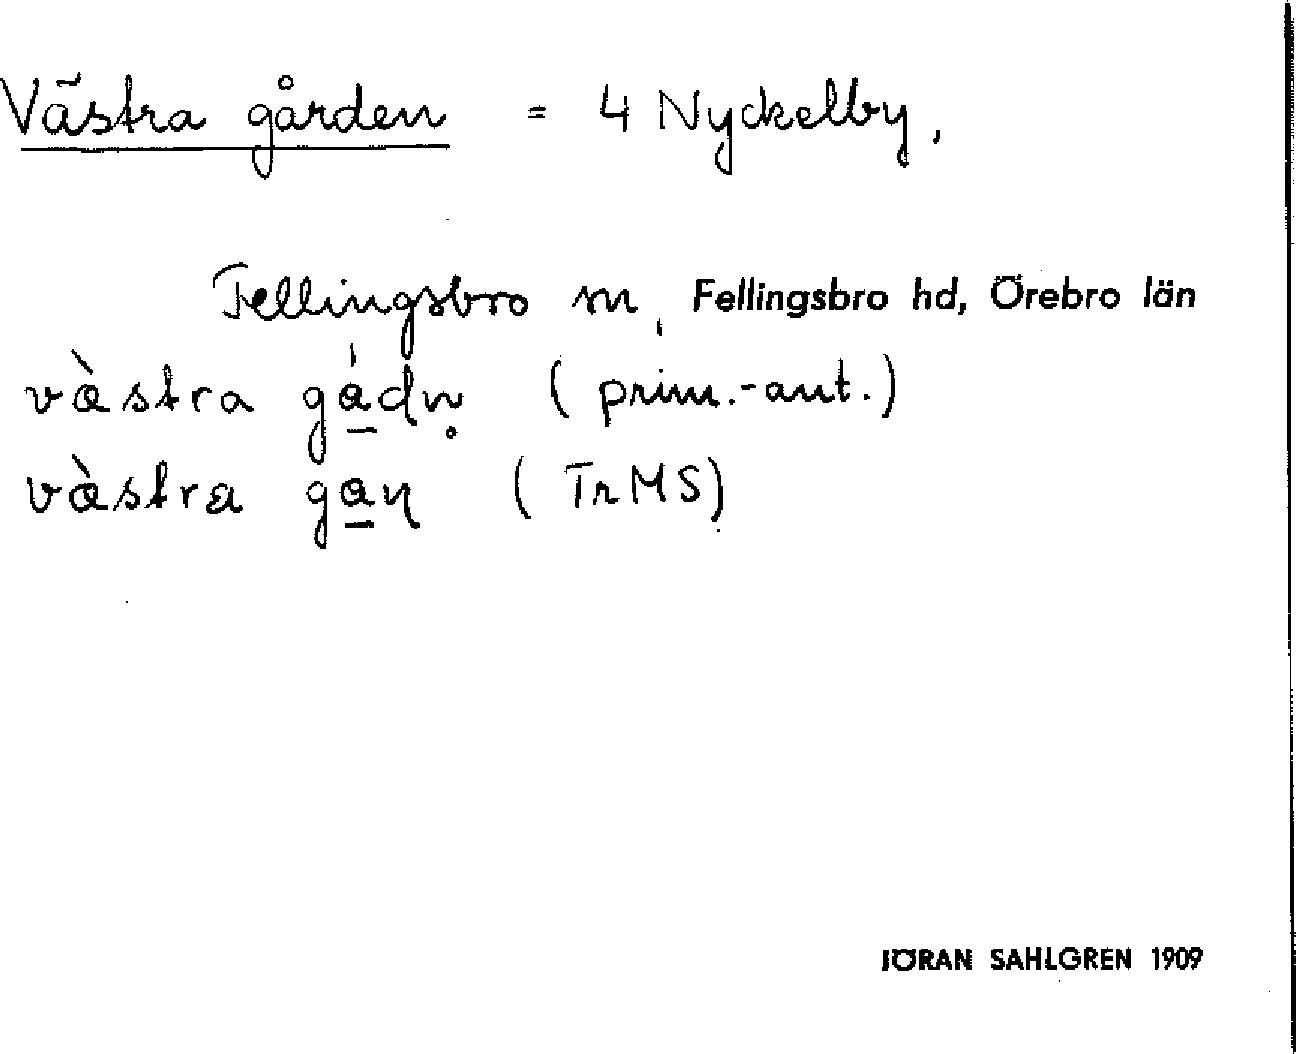 Västra gården = 4 Nyckelby,
Fellingsbro sn, Fellingsbro hd, Örebro län
væ̀stra gá̱dn̥ (prim.-ant.)
væ̀stra ga̱ɳ (TrMS)
JÖRAN SAHLGREN 1909